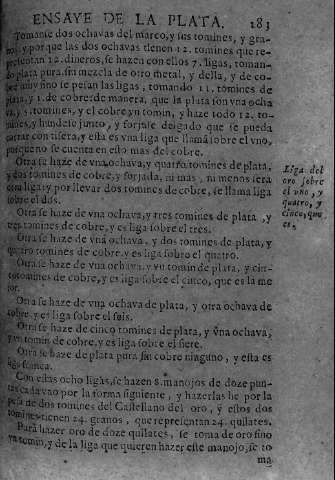 ENSAYE DE LA PLATA. 183
Tomanse dos ochavas del marco, y sus tomines, y gra-
nos, y por que las dos ochavas tienen 12. tomines que re-
presentan 12. dineros, se hazen con ellos 7. ligas, toman-
do plata pura sin mezcla de otro metal, y della, y de co-
bre muy fino se pesan las ligas, tomando 11. tomines de
plata, y 1. de cobre: de manera, que la plata son vna ocha
va, y 5. tomines, y el cobre vn tomin, y haze todo 12. to-
mines, y hundelo junto, y forjase delgado que se pueda
cortar con tisera, y esta es vna liga que llamã sobre el vno,
porque no se cuenta en esto mas del cobre.
Otra se haze de vna ochava, y quatro tomines de plata,
y dos tomines de cobre, y forjada, ni mas, ni menos serà
otra liga: y por llevar dos tomines de cobre, se llama liga
sobre el dos.
Otra se haze de vna ochava, y tres tomines de plata, y
tres tomines de cobre, y es liga sobre el tres.
Otra se haze de vna ochava, y dos tomines de plata, y
quatro tomines de cobre, y es liga sobre el quatro.
Otra se haze de vna ochava, y vn tomin de plata, y cin-
co tomines de cobre, y es liga sobre el cinco, que es la me
jor.
Otra se haze de vna ochava de plata, y otra ochava de
cobre, y es liga sobre el seis.
Otra se haze de cinco tomines de plata, y vna ochava,
y vn tomin de cobre, y es liga sobre el siete.
Otra se haze de plata pura sin cobre ninguno, y esta es
liga
Con estas ocho ligas, se hazen 8. manojos de doze pun-
tas cada vno por la forma siguiente, y hazerlas he por la
pesa de dos tomines del Castellano del oro, y estos dos
tomines tienen 24. granos, que representan 24. quilates.
Para hazer oro de doze quilates, se toma de oro fino
vn tomin, y de la liga que quieren hazer este manojo, se to
ma
Liga del
oro sobre
el vno, y
quatro, y
cinco, que
es,